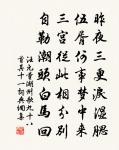 昨夜三更淚濕腮
伍胥何事夢中來
三宮從此相分別
自勒潮頭白馬回
汪元量湖州歌九十八
首其十一詞典網集